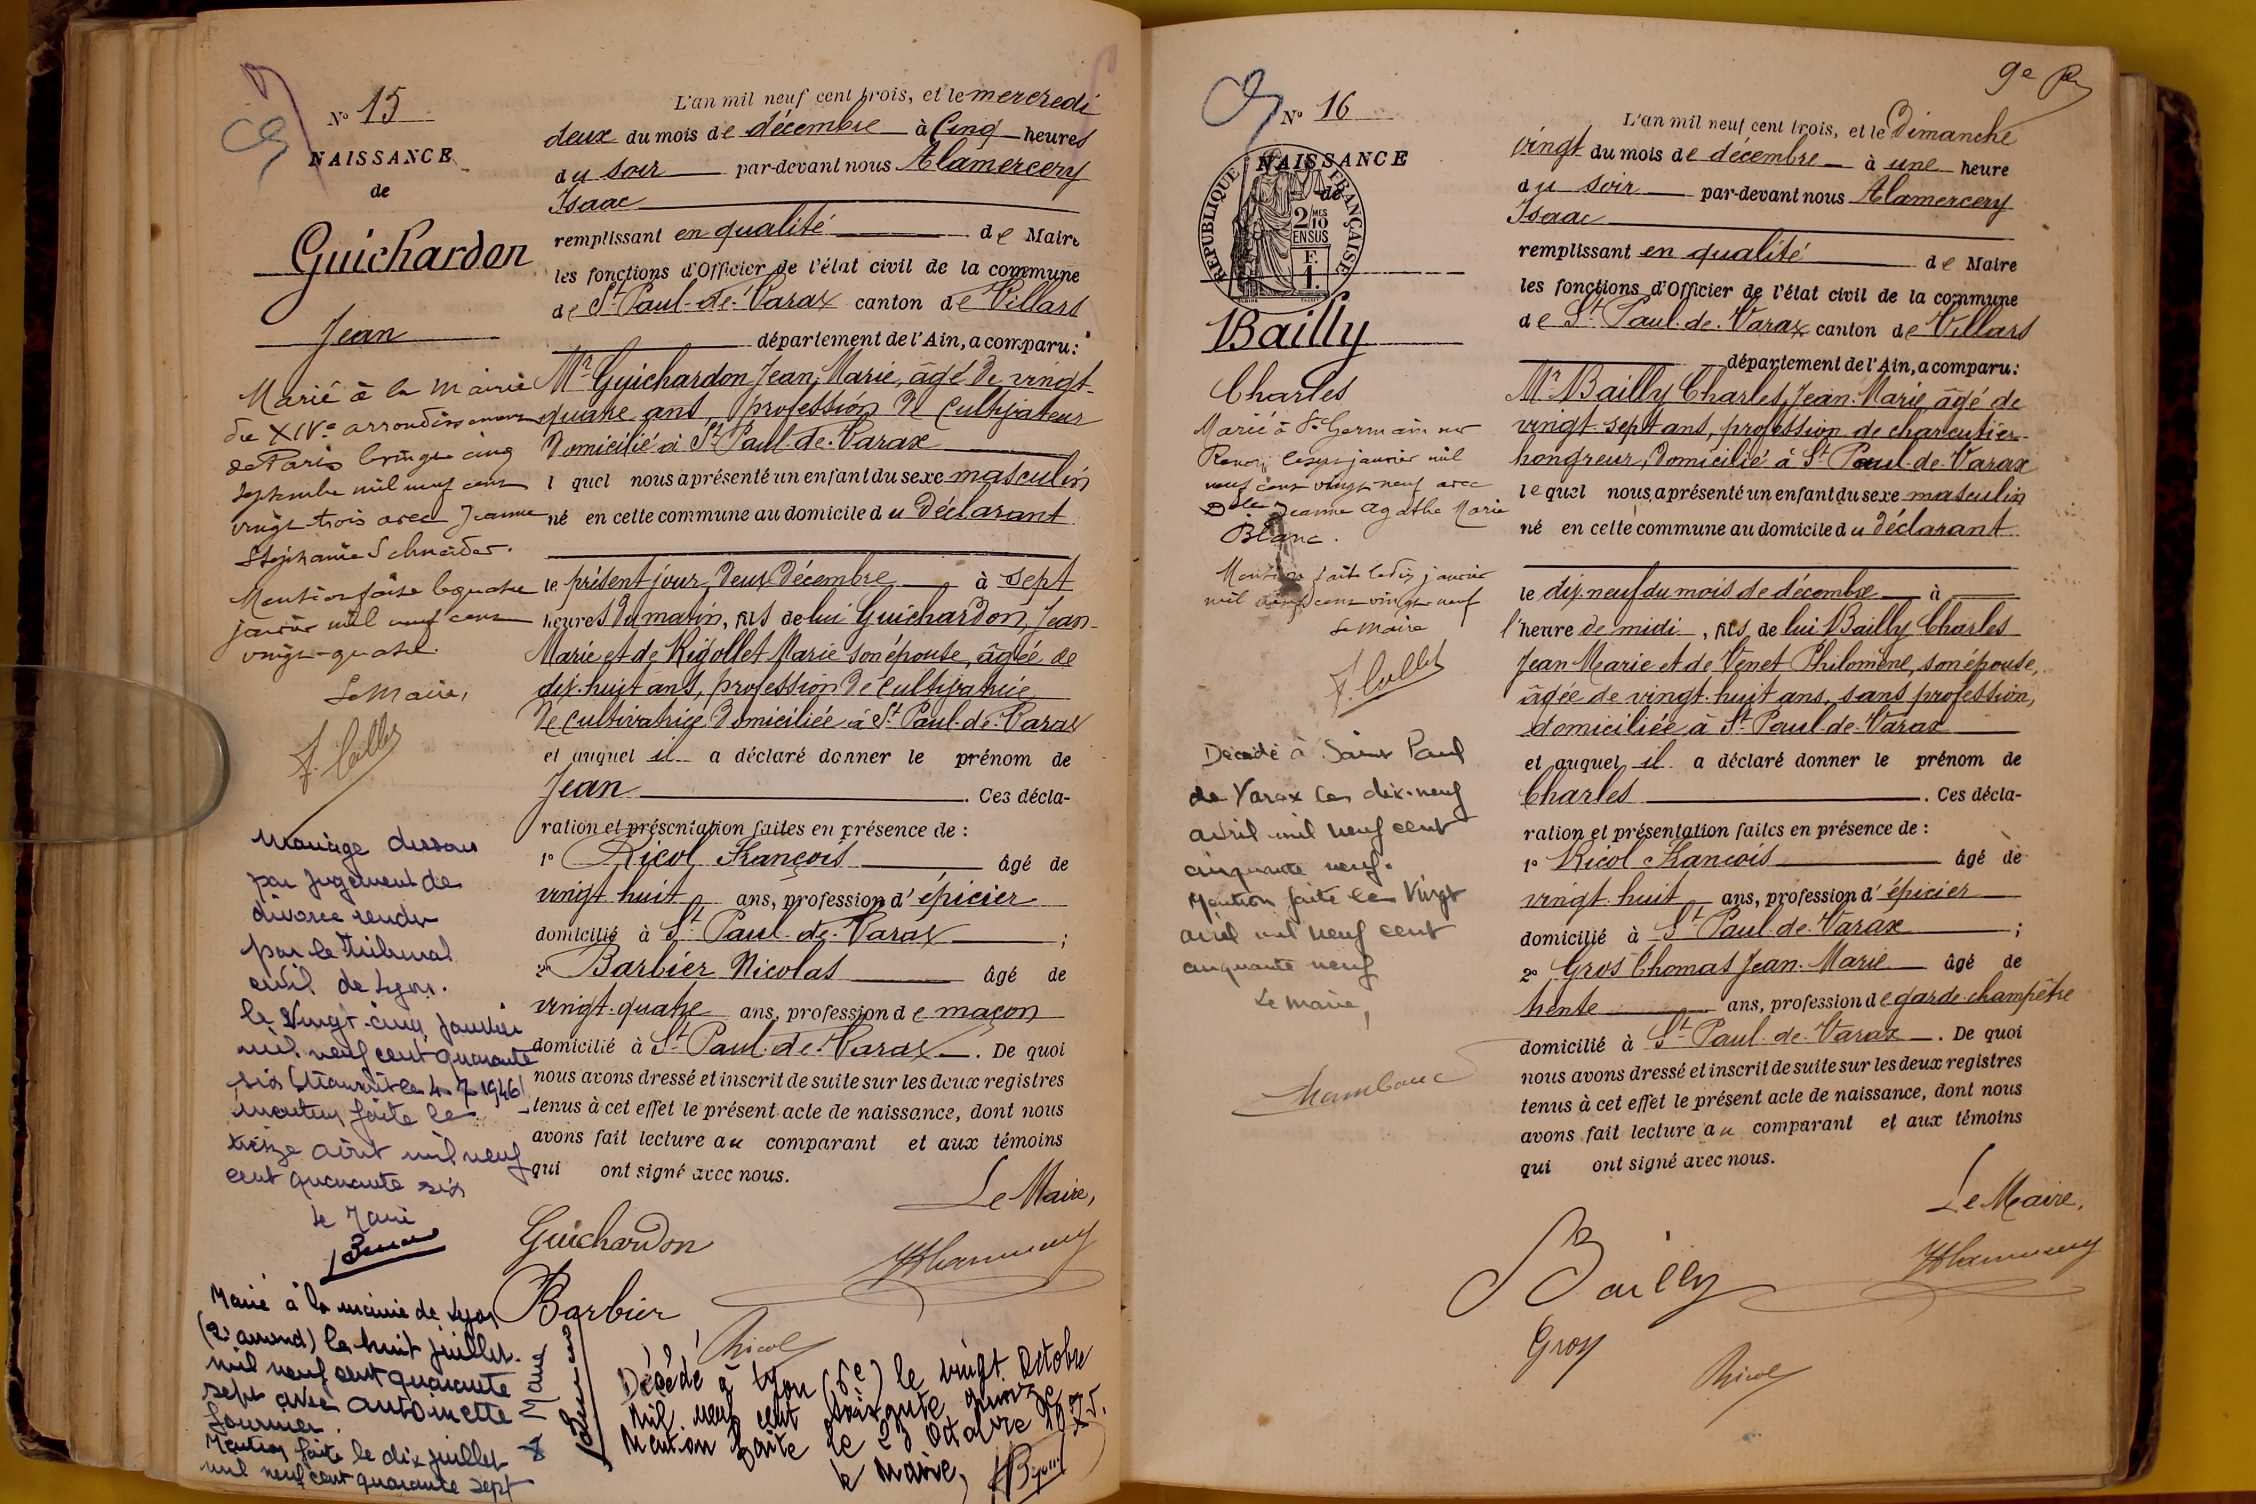 N° 15
NAISSANCE
de
Guichardon
Jean
Marié à la Mairie
du XIVe arrondissement
de Paris le vingt cinq
Septembre mil neuf cent
vingt-trois avec Jeanne
Stéphanie Schneider.
Mention faite le quatre
janvier mil neuf cent
vingt-quatre.
Le Maire,
Mariage dissous
par jugement de
divorce rendu
par le Tribunal
civil de Lyon.
le Vingt-cinq janvier
mil neuf cent quarante
six (transcrit le 4 7 1946)
mention faite le
treize août mil neuf
cent quarante six
Le Maire
Marié à la mairie de Lyon
(2e arrond) le huit juillet
mil neuf cent quarante
sept avec Antoinette
Fournier.
Mention faite le dix juillet
mil neuf cent quarante sept
Le Maire
L'an mil neuf cent trois, et le mercredi
deux du mois de décembre à Cinq heures
du soir par-devant nous Alamercery
Isaac
remplissant en qualité de Maire
les fonctions d'Officier de l'état civil de la commune
de St Paul-de-Varax canton de Villars
département de l'Ain, a comparu:
Mr Guichardon Jean-Marie, âgé de vingt-
quatre ans, profession de Cultivateur
domicilié à St Paul-de-Varax
l quel nous a présenté un enfant du sexe masculin
né en cette commune au domicile du Déclarant
le présent jour, deux Décembre à sept
heures du matin, fils de lui Guichardon, Jean-
Marie et de Rigollet Marie son épouse, âgée de
dix-huit ans, profession de cultivatrice
de cultivatrice domiciliée à St Paul-de-Varax
et auquel il a déclaré donner le prénom de
Jean. Ces décla-
ration et présentation faites en présence de :
1° Ricol François âgé de
vingt huit ans, profession d'épicier
domicilié à St Paul-de-Varax ;
2° Barbier Nicolas âgé de
vingt-quatre ans, profession de maçon
domicilié à St Paul-de-Varax. De quoi
nous avons dressé et inscrit de suite sur les deux registres
tenus à cet effet le présent acte de naissance, dont nous
avons fait lecture au comparant et aux témoins
qui ont signé avec nous.
Le Maire,
Guichardon
Barbier
Ricol
Décédé à Lyon (6e) le vingt Octobre
mil neuf cent soixante quinze
Mention faite le 23 Octobre 1975.
le Maire,
9e
N° 16
NAISSANCE
de
RÉPUBLIQUE FRANÇAISE
2/10 MES
EN SUS
F.
1.
Bailly
Charles
Marié à St Germain sur
Renon, le six janvier mil
neuf cent vingt neuf avec
Delle Jeanne Agathe Marie
Blanc.
Mention faite le dix janvier
mil neuf cent vingt neuf
Le Maire
Décédé à Saint Paul
de Varax le dix-neuf
avril mil neuf cent
cinquante neuf.
Mention faite le Vingt
avril mil neuf cent
cinquante neuf
Le Maire,
L'an mil neuf cent trois, et le Dimanche
vingt du mois de décembre à une heure
du soir par-devant nous Alamercery
Isaac
remplissant en qualité de Maire
les fonctions d'Officier de l'état civil de la commune
de St Paul-de-Varax canton de Villars
département de l'Ain, a comparu:
Mr Bailly Charles, Jean-Marie âgé de
vingt-sept ans, profession de charcutier-
hongreur, domicilié à St Paul-de-Varax
lequel nous a présenté un enfant du sexe masculin
né en cette commune au domicile du déclarant
le dix-neuf du mois de décembre à
l'heure de midi, fils de lui Bailly Charles
Jean Marie et de Venet Philomène, son épouse,
âgée de vingt-huit ans, sans profession,
domiciliée à St Paul-de-Varax
et auquel il a déclaré donner le prénom de
Charles. Ces décla-
ration et présentation faites en présence de :
1° Ricol François âgé de
vingt-huit ans, profession d'épicier
domicilié à St Paul-de-Varax ;
2° Gros Thomas Jean-Marie âgé de
trente ans, profession de garde-champêtre
domicilié à St Paul-de-Varax. De quoi
nous avons dressé et inscrit de suite sur les deux registres
tenus à cet effet le présent acte de naissance, dont nous
avons fait lecture au comparant et aux témoins
qui ont signé avec nous.
Le Maire,
Bailly
Gros
Ricol